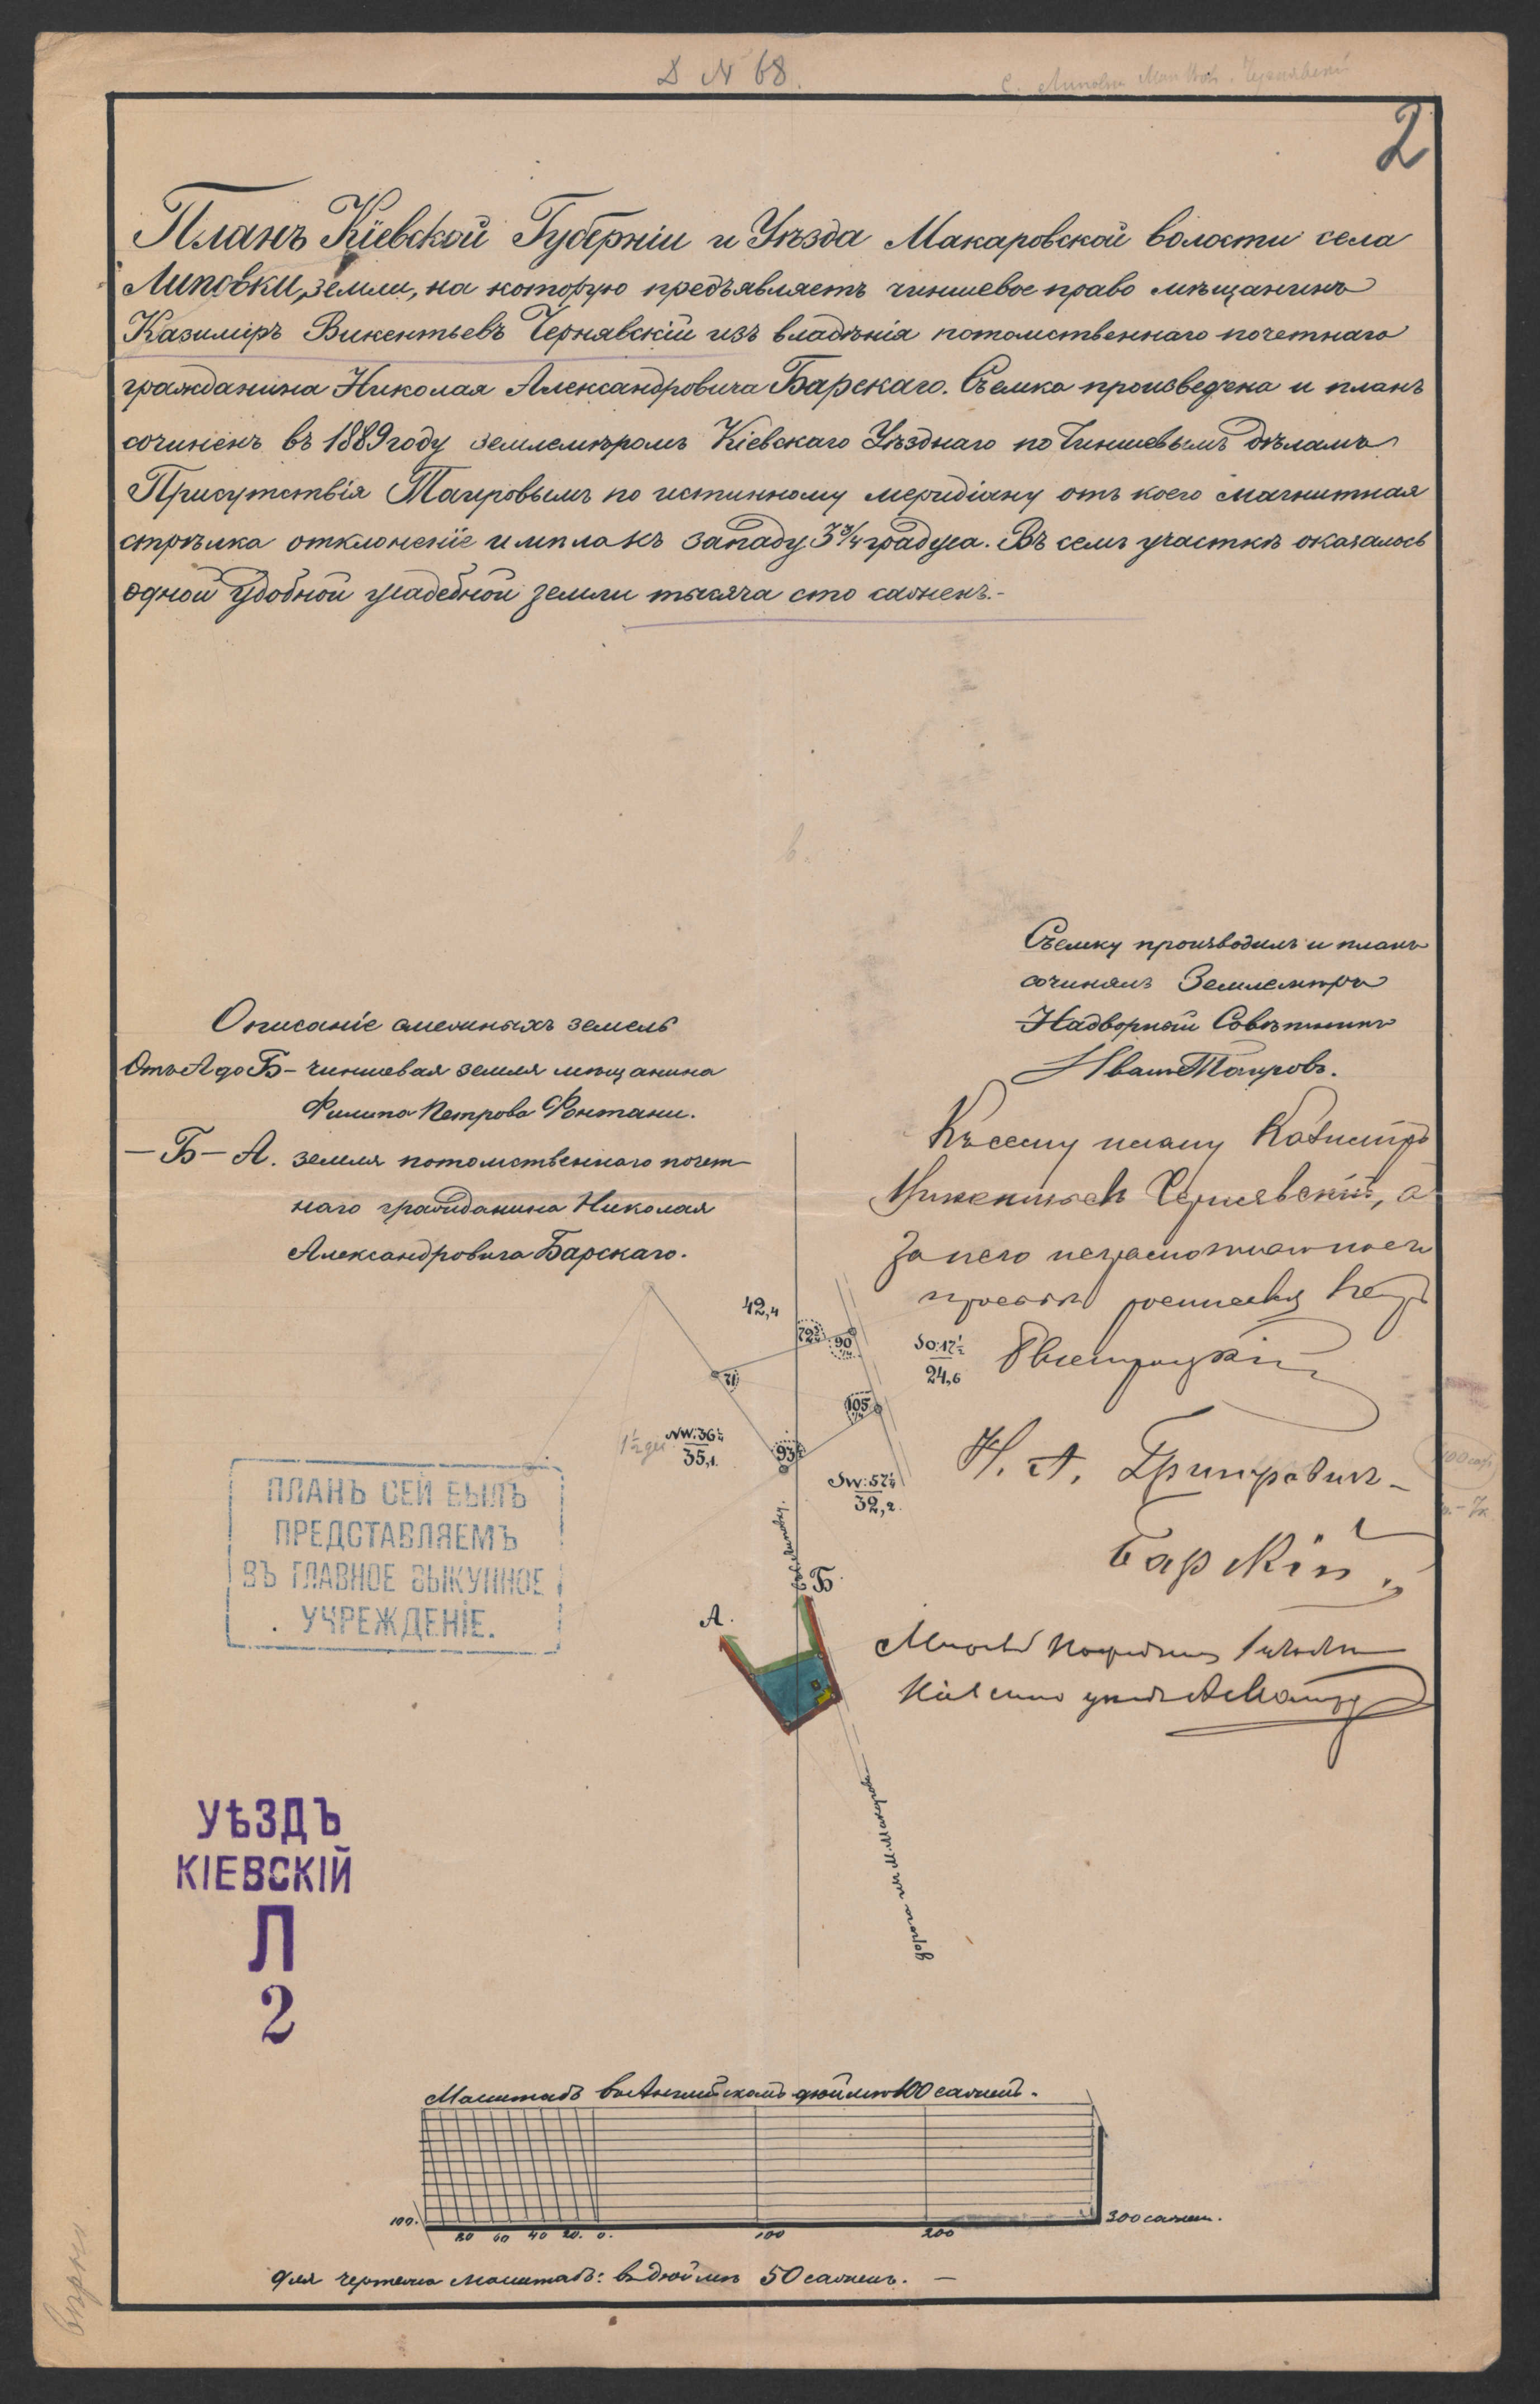 D N 68.
2
Планъ Кіевской Губерніи и Уѣзда Макаровской волости села
Липовки, земли, на которую предъявляетъ чиншевое право мѣщанинъ
Казиміръ Викентьевъ Чернявскій изъ владѣнія потомственнаго почетнаго
гражданина Николая Александровича Барскаго. Съемка произведена и планъ
сочиненъ въ 1889 году землемѣромъ Кіевскаго Уѣзднаго по Чиншевымъ дѣламъ
Присутствія Таировымъ по истинному меридіану отъ коего магнитная
стрѣлка отклоненіе имѣла къ западу 3¾ градуса. Въ семъ участкѣ оказалось
одной удобной усадебной земли тысяча сто саженъ.-
Съемку производилъ и планъ
сочинялъ Землемѣръ
Надворный Совѣтникъ
Иванъ Таировъ.
Описаніе смежныхъ земель
Отъ А до Б - чиншевая земля мѣщанина
Филипа Петрова Фонтани.
— Б — А. земля потомственнаго почет-
наго гражданина Николая
Александровича Барскаго.
Къ сему плану Казиміръ
Чернявскій, а
за него неграмотнаго
42,4
72¾
90
SO:17½
24,6
71
105
NW:36¼
35,1.
93
SW:57¼
32,2.
Н. А.
Барскій
ПЛАНЪ СЕЙ БЫЛЪ
ПРЕДСТАВЛЯЕМЪ
ВЪ ГЛАВНОЕ ВЫКУПНОЕ
УЧРЕЖДЕНІЕ.
Липовку.
Б.
А.
дорога изъ М. Макарова
УѢЗДЪ
КІЕВСКІЙ
Л
2
Масштабъ въ Англійскомъ дюймѣ 100 саженъ.
100. 80 60 40 20. 0. 100 200 300 сажен.
для чертежа масштабъ: въ дюймѣ 50 саженъ. —